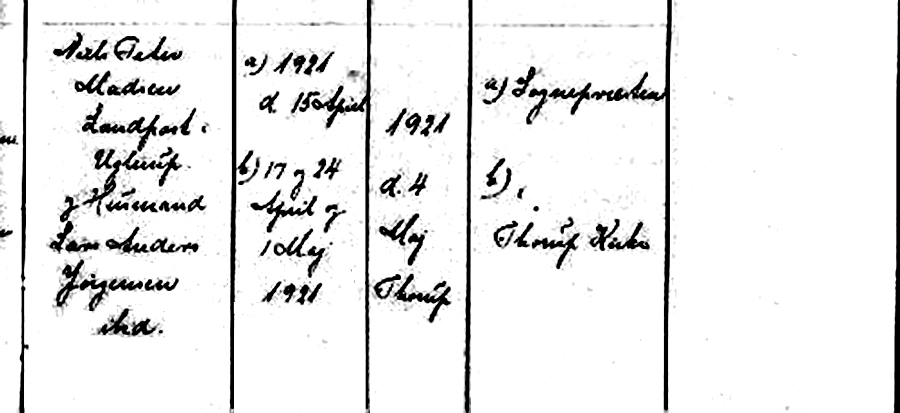 Niels Peter
Madsen
Landpost i
Uglrup
og Husmand
Lars Anders
Jörgensen
ibid.
a) 1921
d. 15 April
b) 17 og 24
April og
1 Maj
1921
1921
d. 4
Maj
Thorup
a) Sognepræsten
b) i
Thorup Kirke